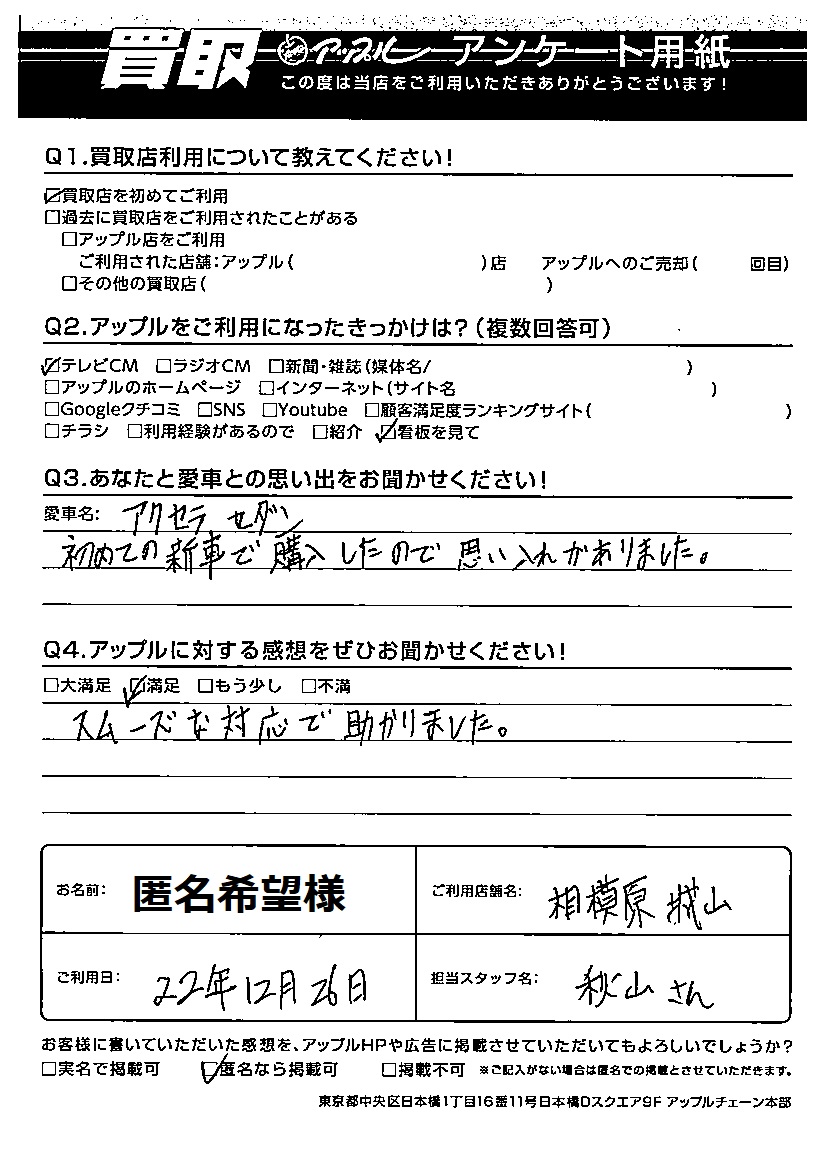 買取 アップル アンケート用紙
この度は当店をご利用いただきありがとうございます!
Q1.買取店利用について教えてください!
☑買取店を初めてご利用
□過去に買取店をご利用されたことがある
□アップル店をご利用
ご利用された店舗:アップル( )店 アップルへのご売却( 回目)
□その他の買取店( )
Q2.アップルをご利用になったきっかけは?(複数回答可)
☑テレビCM □ラジオCM □新聞・雑誌(媒体名/ )
□アップルのホームページ □インターネット(サイト名 )
□Googleクチコミ □SNS □Youtube □顧客満足度ランキングサイト( )
□チラシ □利用経験があるので □紹介 ☑看板を見て
Q3.あなたと愛車との思い出をお聞かせください!
愛車名: アクセラ セダン
初めての新車で購入したので思い入れがありました。
Q4.アップルに対する感想をぜひお聞かせください!
□大満足 ☑満足 □もう少し □不満
スムーズな対応で助かりました。
お名前: 匿名希望様
ご利用店舗名: 相模原城山
ご利用日: 22年12月26日
担当スタッフ名: 秋山さん
お客様に書いていただいた感想を、アップルHPや広告に掲載させていただいてもよろしいでしょうか?
□実名で掲載可 ☑匿名なら掲載可 □掲載不可 ※ご記入がない場合は匿名での掲載とさせていただきます。
東京都中央区日本橋1丁目16番11号日本橋Dスクエア9F アップルチェーン本部